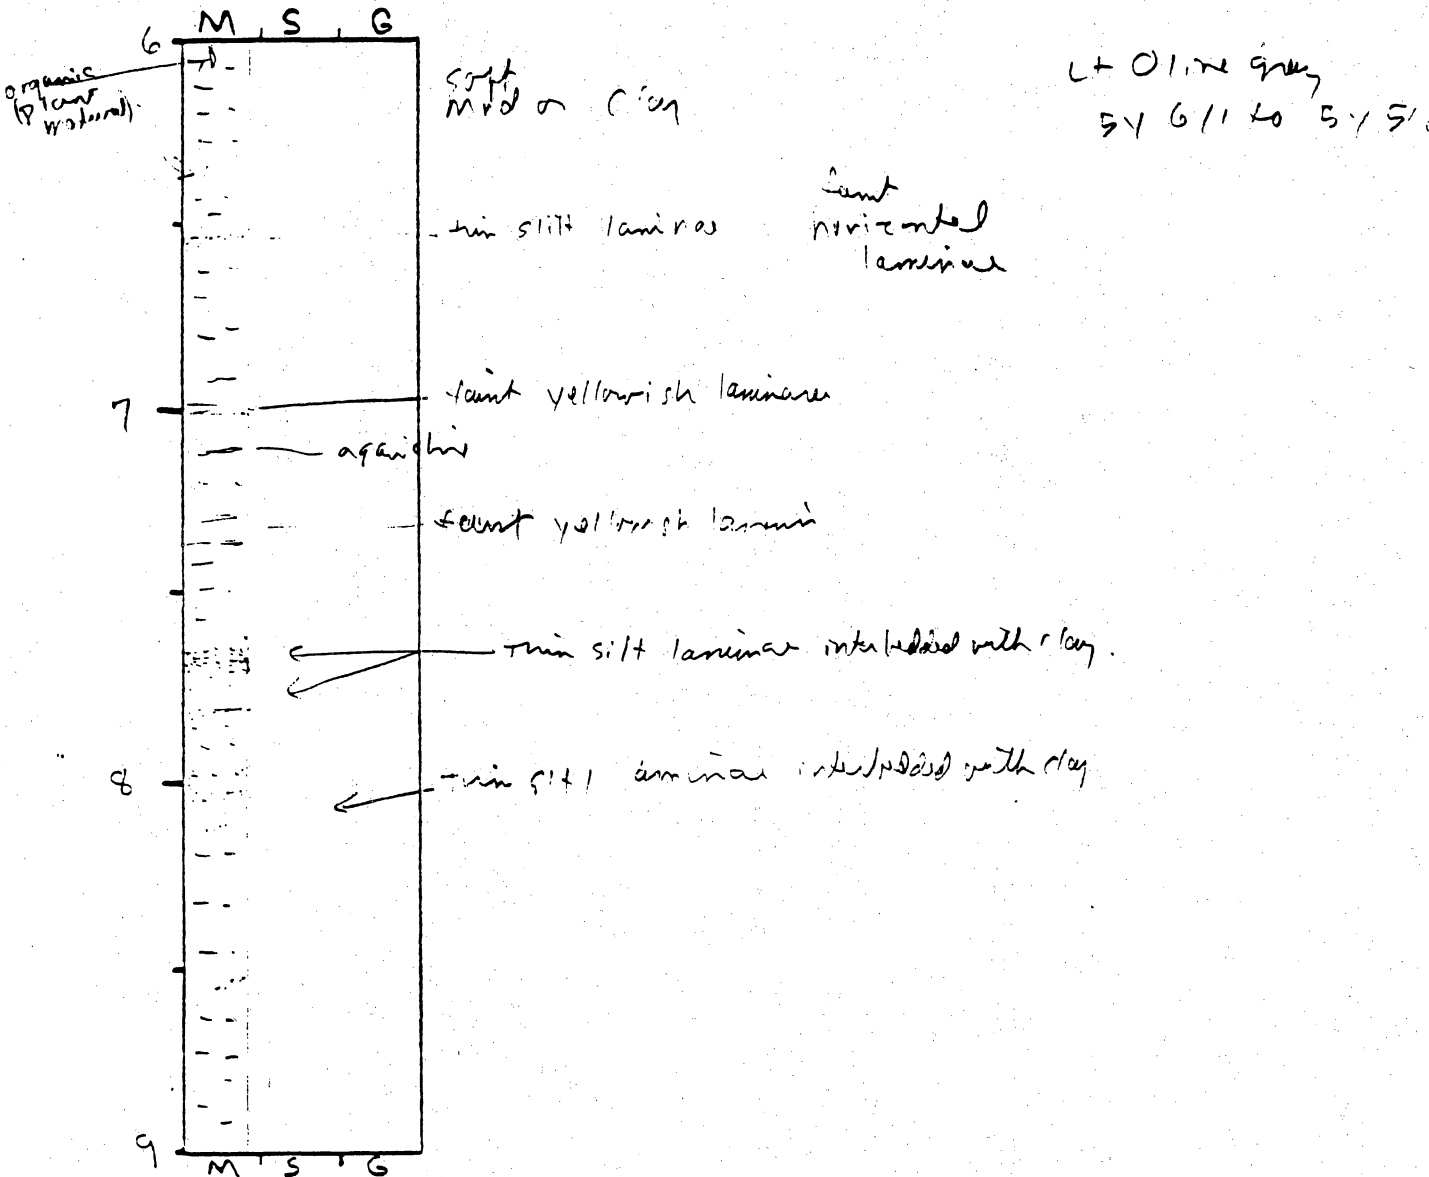 M S G
6
organic
(Plant
material)
soft
mud or clay
Lt Olive gray
5Y 6/1 to 5Y 5/
faint
thin slilt laminae horizontal
laminae
7 faint yellowish laminae
faint yellowish lamin
Thin silt laminae interbedded with clay.
8 Thin silt laminae interbedded with clay
9
M S G